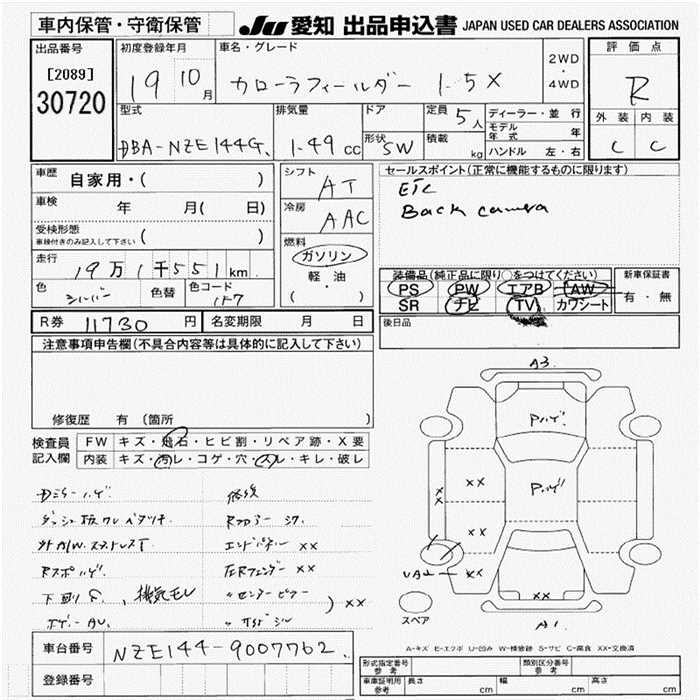 車内保管・守衛保管
JU 愛知 出品申込書 JAPAN USED CAR DEALERS ASSOCIATION
出品番号
[2089]
30720
初度登録年月
19 10月
車名・グレード
カローラフィールダー 1.5X
2WD
・
4WD
評価点
R
外装 内装
C C
型式
DBA-NZE144G
排気量
1.49cc
ドア
形状 SW
定員 5人
積載 kg
ディーラー・並行
モデル年式 年
ハンドル 左・右
車歴 自家用・( )
車検 年 月( 日)
受検形態
車検付きのみ記入して下さい ( )
走行 19万1千551km
色 シルバー 色替 色コード 1F7
シフト AT
冷房 AAC
燃料
ガソリン
軽・油
( )
セールスポイント(正常に機能するものに限ります)
ETC
Back camera
装備品(純正品に限り○をつけてください)
PS PW エアB AW
SR ナビ TV カワシート
新車保証書
有・無
後日品
R券 11730円 名変期限 月 日
注意事項申告欄(不具合内容等は具体的に記入して下さい)
修復歴 有 (箇所 )
検査員記入欄
FW キズ・飛石・ヒビ割・リペア跡・X要
内装 キズ・汚レ・コゲ・穴・スレ・キレ・破レ
修復
Rフロアー
エンドパネル XX
左Rフェンダー XX
〃センターピラー
) XX
Rスポハゲ
下廻りS、機気モレ
A3
Pハゲ
Pハゲ
XX
XX
XX
XX
XX
A1
スペア
A-キズ E-エクボ U-凹み W-補修跡 S-サビ C-腐食 XX-交換済
車台番号 NZE144-9007762
登録番号
形式指定番号 参考
類別区分番号 参考
車庫証明用 参考
長さ cm 幅 cm 高さ cm